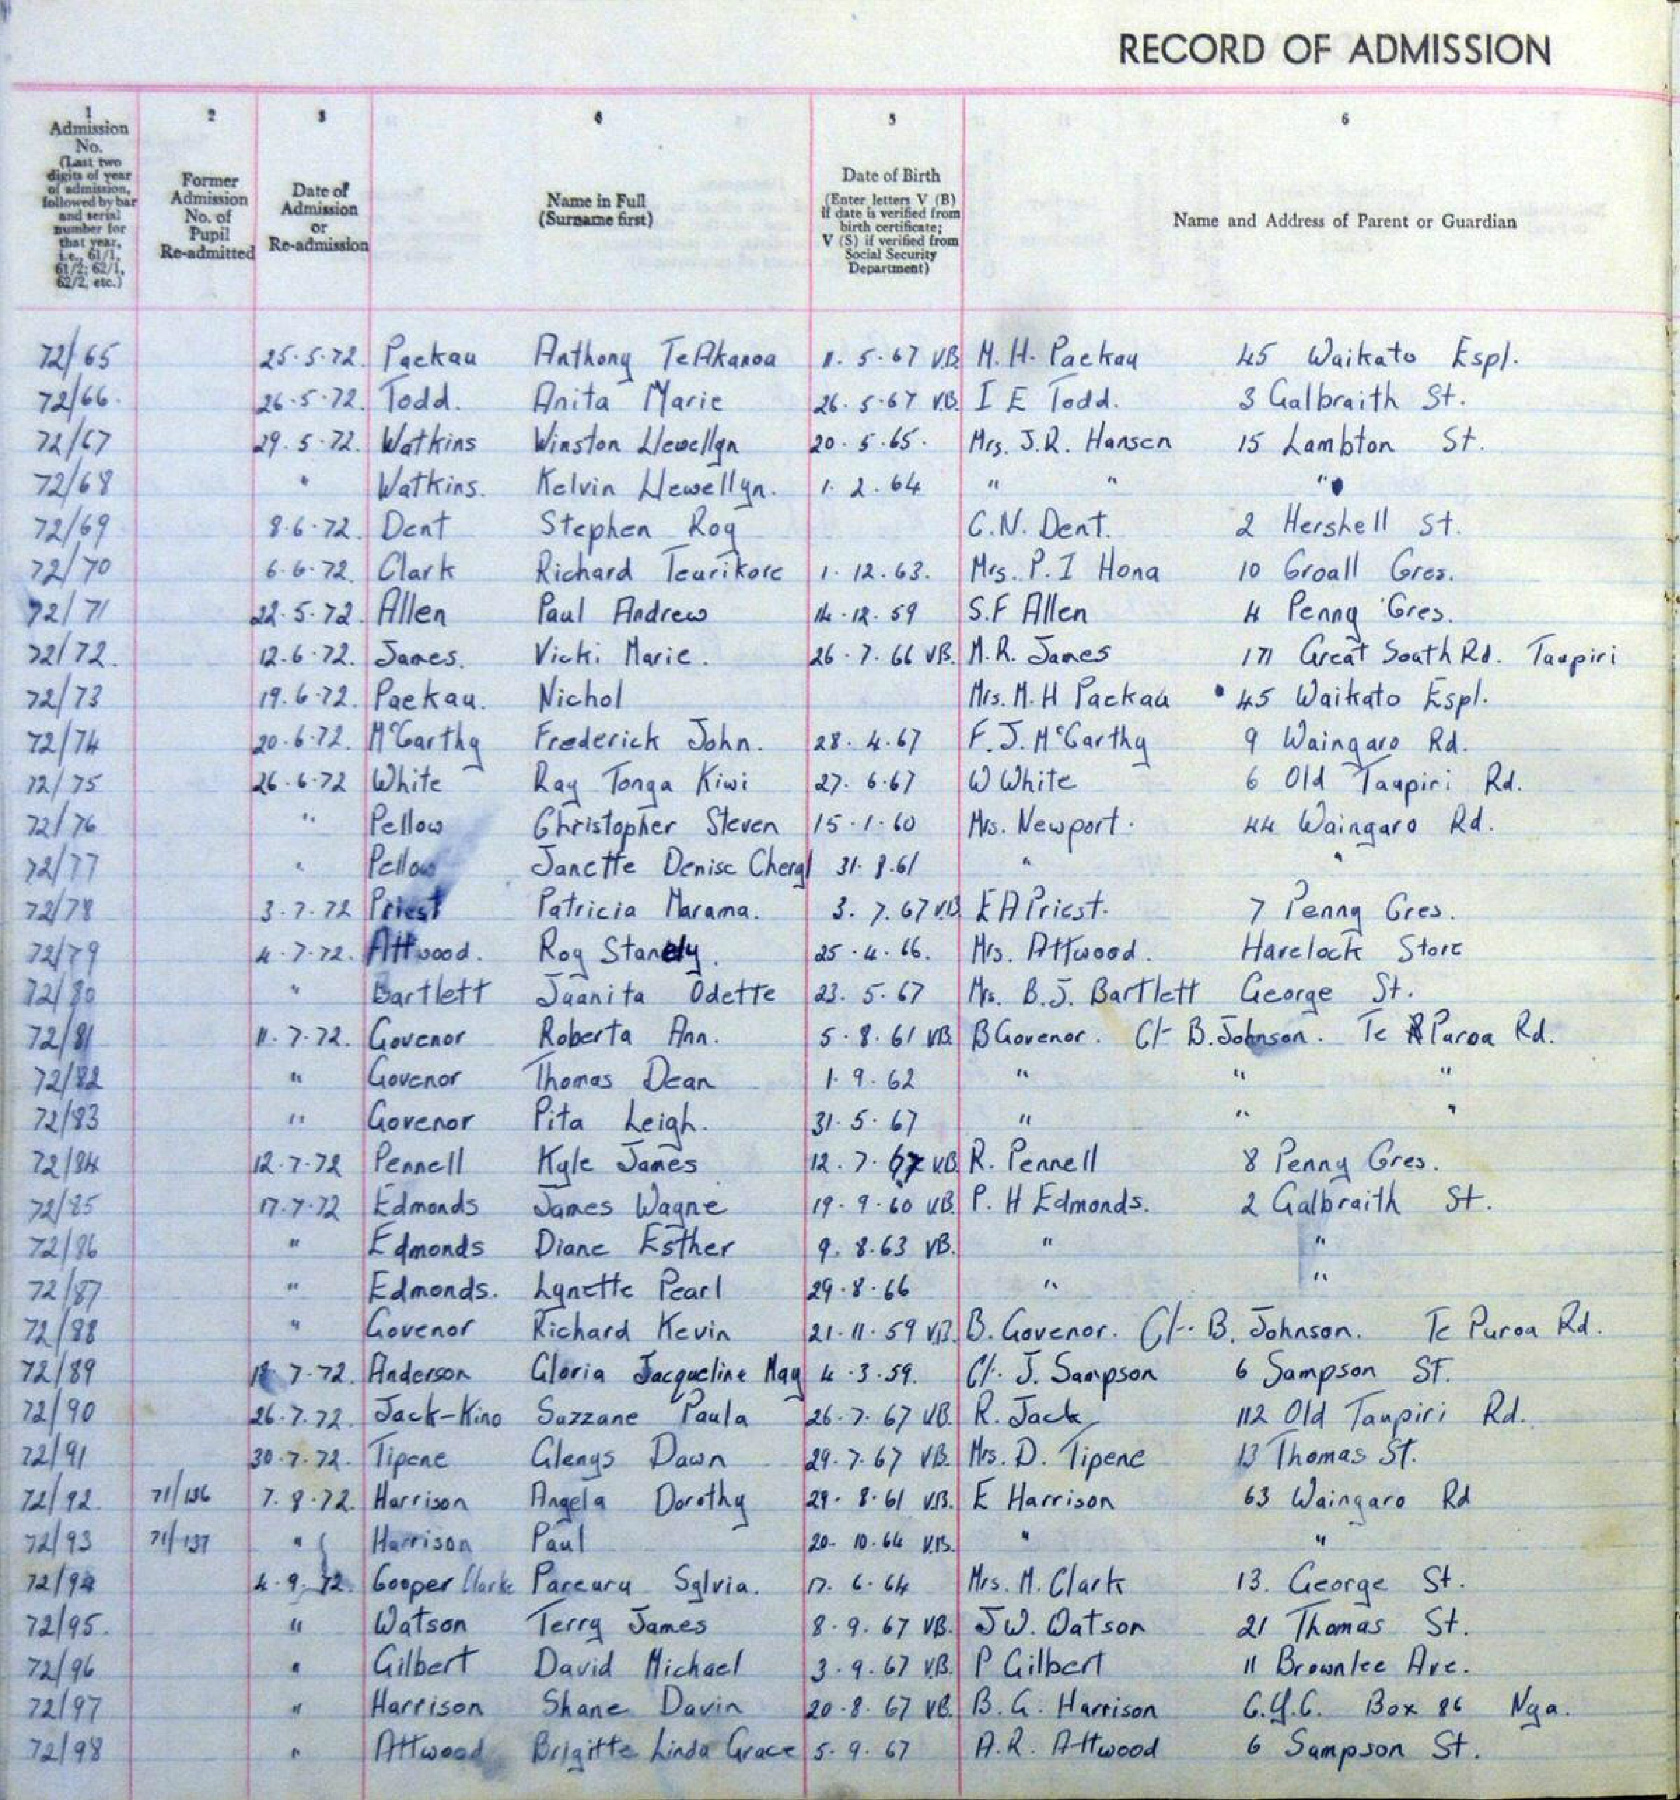 RECORD OF ADMISSION
1 2 3 4 5 6
Admission No. (Last two digits of year of admission, followed by bar and serial number for that year, i.e., 61/1, 61/2; 62/1, 62/2, etc.)
Former Admission No. of Pupil Re-admitted
Date of Admission or Re-admission
Name in Full (Surname first)
Date of Birth (Enter letters V (B) if date is verified from birth certificate; V (S) if verified from Social Security Department)
Name and Address of Parent or Guardian
72/65 25.5.72. Paekau Anthony TeAkanoa 11.5.67 V.B. M.H. Paekau 45 Waikato Espl.
72/66. 26.5.72. Todd. Anita Marie 26.5.67 V.B. I E Todd. 3 Galbraith St.
72/67 29.5.72. Watkins Winston Llewellyn 20.5.65. Mrs. J.R. Hansen 15 Lambton St.
72/68 " Watkins. Kelvin Llewellyn. 1.2.64 " " "
72/69 8.6.72. Dent Stephen Roy C.N. Dent. 2 Hershell St.
72/70 6.6.72. Clark Richard Teurikore 1.12.63. Mrs. P.I Hona 10 Croall Cres.
72/71 22.5.72. Allen Paul Andrew 14.12.59 S.F Allen 4 Penny Cres.
72/72. 12.6.72. James. Vicki Marie. 26.7.66 VB. M.R. James 171 Great South Rd. Taupiri
72/73 19.6.72. Paekau. Nichol Mrs. M.H Paekau 45 Waikato Espl.
72/74 20.6.72. McCarthy Frederick John. 28.4.67 F.J. McCarthy 9 Waingaro Rd.
72/75 26.6.72 White Ray Tonga Kiwi 27.6.67 W White 6 Old Taupiri Rd.
72/76 " Pellow Christopher Steven 15.1.60 Mrs. Newport. 44 Waingaro Rd.
72/77 " Pellow Janette Denise Cheryl 31.8.61 " "
72/78 3.7.72 Priest Patricia Marama. 3.7.67 V.B. E A Priest. 7 Penny Cres.
72/79 4.7.72. Attwood. Roy Stanely. 25.4.66. Mrs. Attwood. Havelock Store
72/80 " Bartlett Juanita Odette 23.5.67 Mrs. B.J. Bartlett George St.
72/81 11.7.72. Govenor Roberta Ann. 5.8.61 VB. B Govenor. C/- B. Johnson. Te Puroa Rd.
72/82 " Govenor Thomas Dean 1.9.62 " " "
72/83 " Govenor Pita Leigh. 31.5.67 " " "
72/84 12.7.72 Pennell Kyle James 12.7.67 V.B. R. Pennell 8 Penny Cres.
72/85 17.7.72 Edmonds James Wayne 19.9.60 V.B. P. H Edmonds. 2 Galbraith St.
72/86 " Edmonds Diane Esther 9.8.63 VB. " "
72/87 " Edmonds. Lynette Pearl 29.8.66 " "
72/88 " Govenor Richard Kevin 21.11.59 V.B. B. Govenor. C/-. B. Johnson. Te Puroa Rd.
72/89 7.72. Anderson Gloria Jacqueline May 4.3.59. C/. J. Sampson 6 Sampson ST.
72/90 26.7.72. Jack-Kino Suzzane Paula 26.7.67 VB. R. Jack 112 Old Taupiri Rd.
72/91 30.7.72. Tipene Glenys Dawn 29.7.67 VB. Mrs. D. Tipene 13 Thomas St.
72/92. 71/136 7.8.72. Harrison Angela Dorothy 29.8.61 V.B. E Harrison 63 Waingaro Rd
72/93 71/137 " Harrison Paul 20.10.64 V.B. " "
72/94 4.9.72. Cooper Clarke Pareuru Sylvia. 17.6.64 Mrs. M. Clark 13. George St.
72/95. " Watson Terry James 8.9.67 VB. J W. Watson 21 Thomas St.
72/96 " Gilbert David Michael 3.9.67 V.B. P Gilbert 11 Brownlee Ave.
72/97 " Harrison Shane Davin 20.8.67 VB. B. G. Harrison C.Y.C. Box 86 Nga.
72/98 " Attwood Brigitte Linda Grace 5.9.67 A.R. Attwood 6 Sampson St.